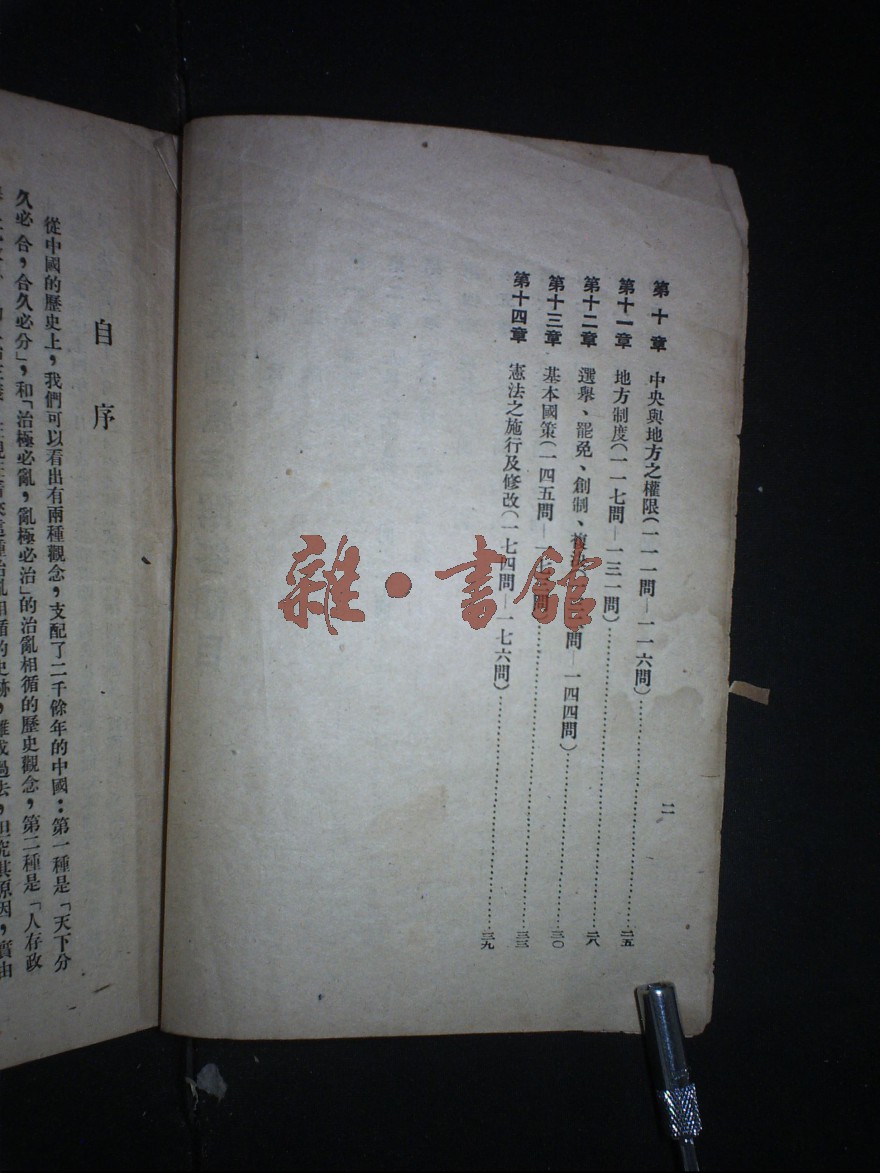 第十章　中央與地方之權限(一一一問—一一六問)……二五
第十一章　地方制度(一一七問—一三一問)……二八
第十二章　選舉、罷免、創制、複 問—一四四問)……三〇
第十三章　基本國策(一四五問—一七 問)……三三
第十四章　憲法之施行及修改(一七四問—一七六問)……三九
二
雜·書館
自序
從中國的歷史上，我們可以看出有兩種觀念，支配了二千餘年的中國：第一種是「天下分
久必合，合久必分」，和「治極必亂，亂極必治」的治亂相循的歷史觀念，第二種是「人存政